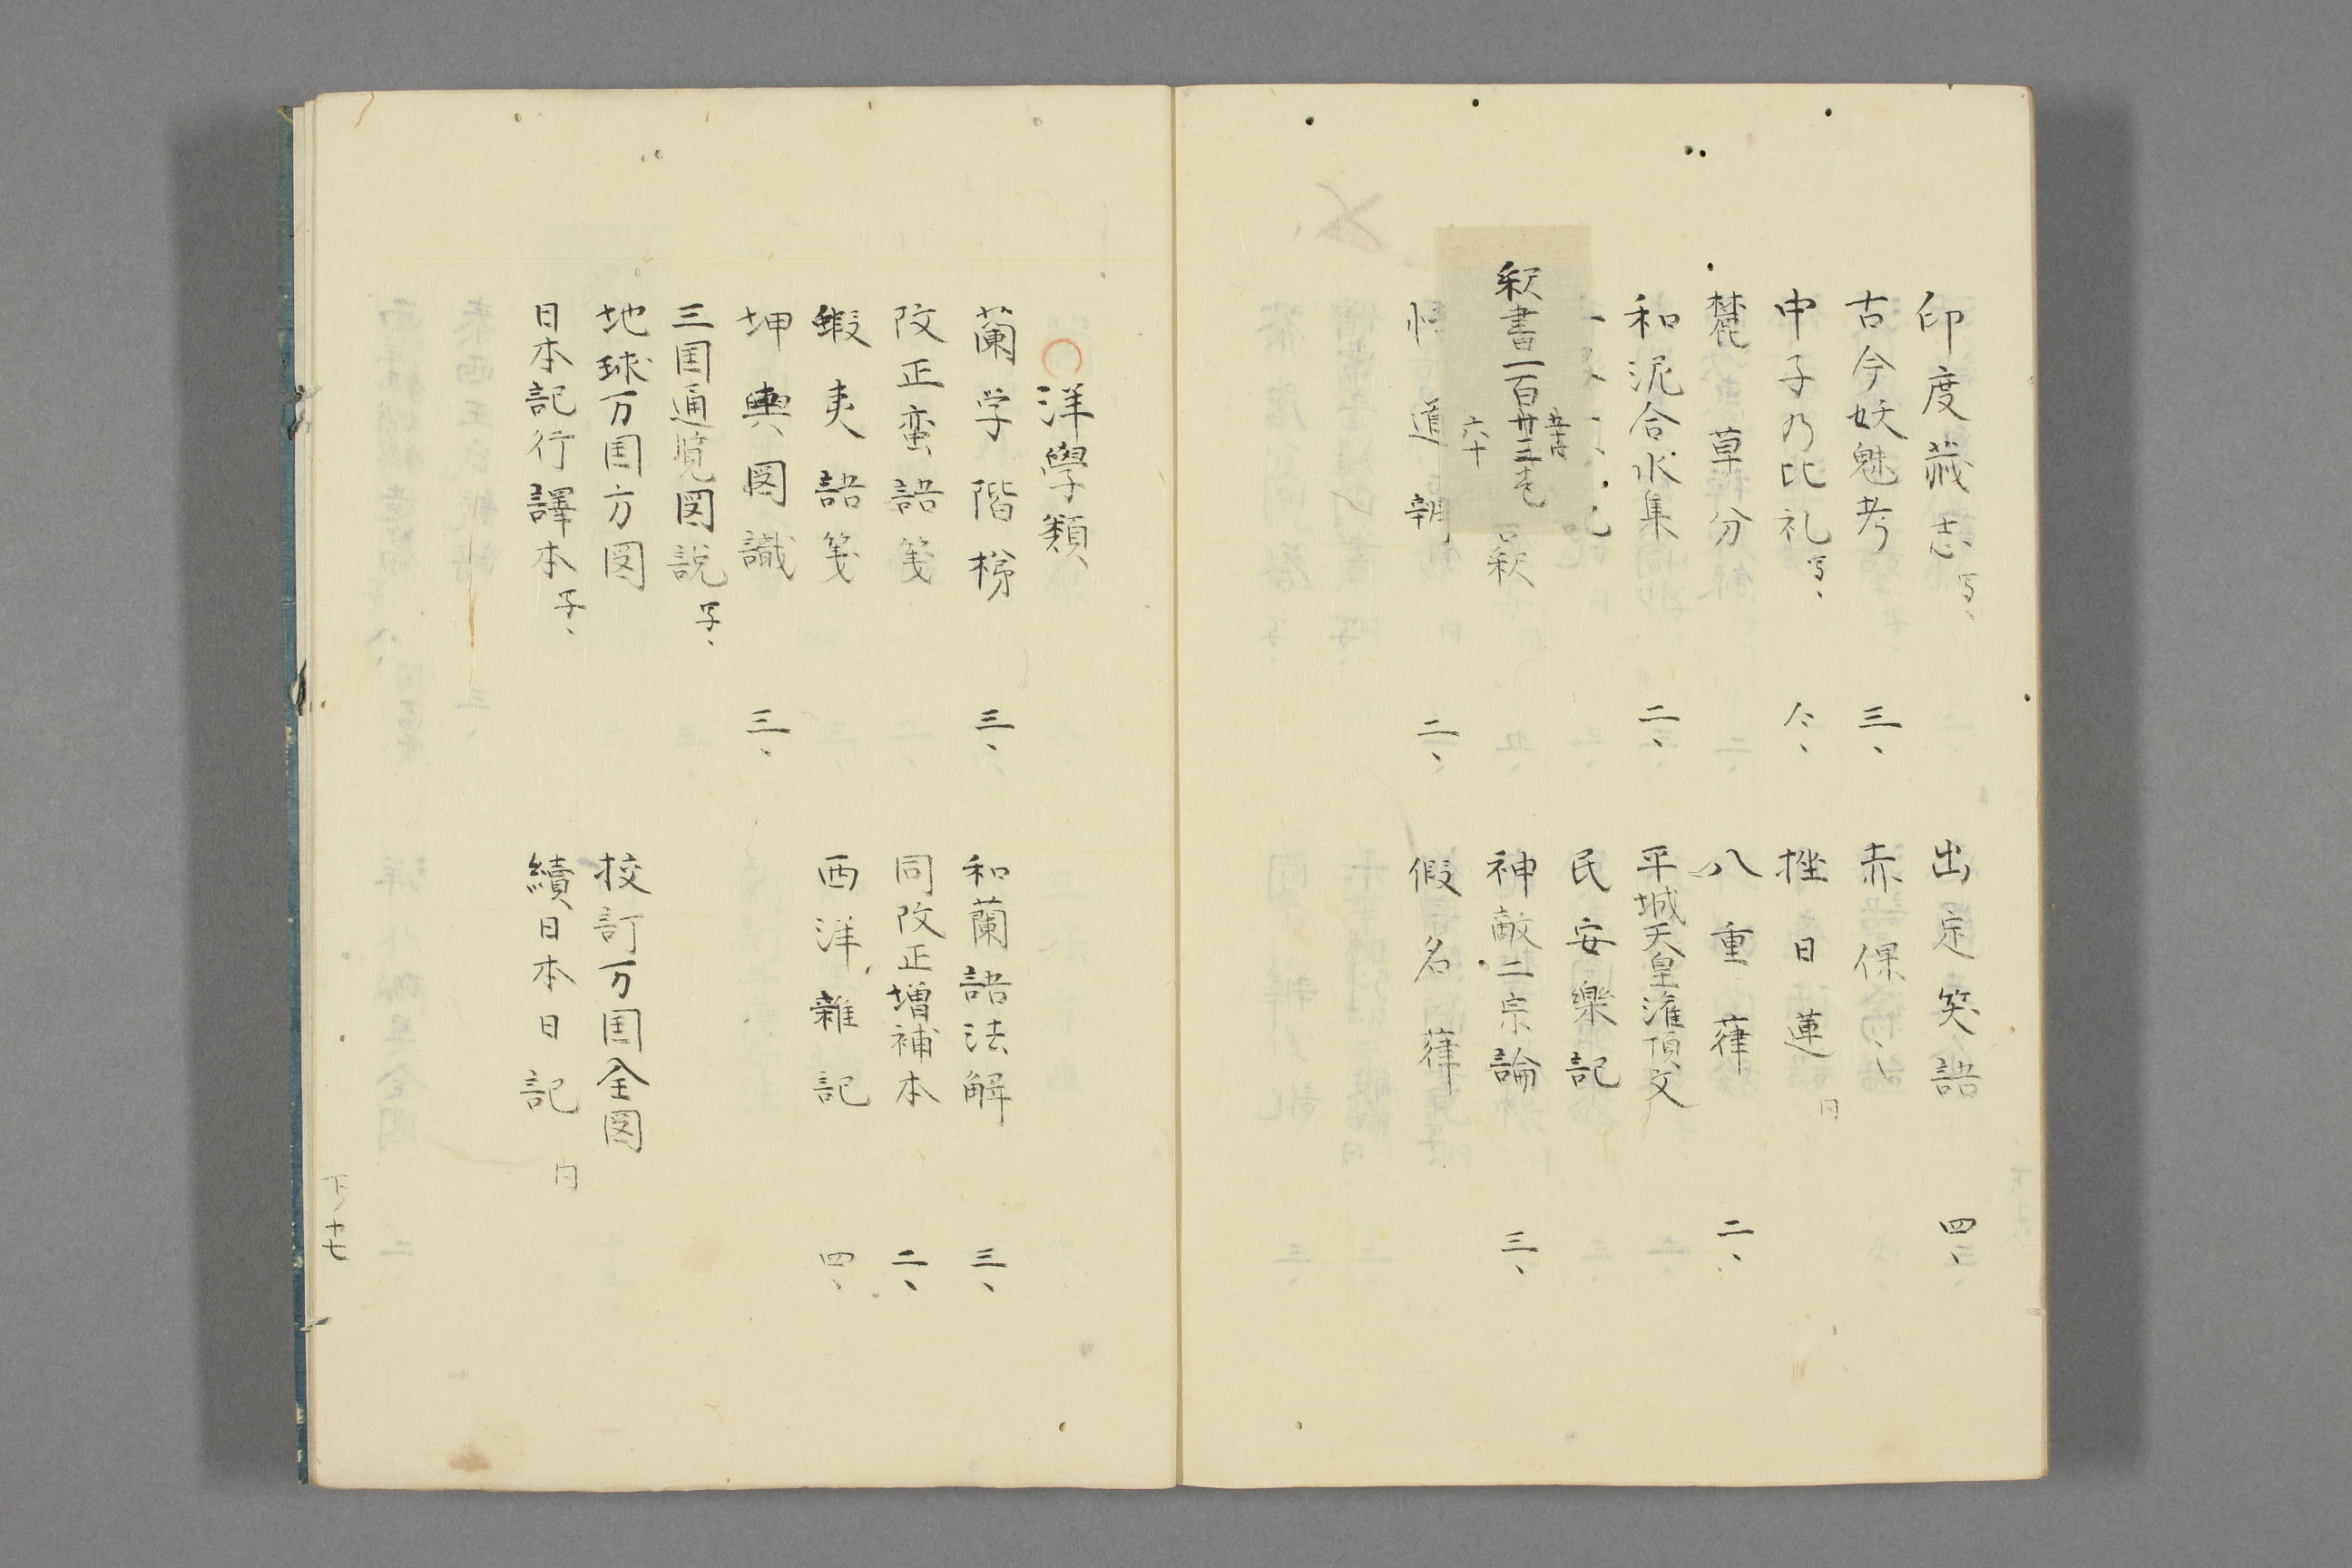 印度蔵志 写、
出定笑語 四、
古今妖魅考 三、
赤倮々
申子乃比礼 写、 仝、
挫日蓮 同
麓草分
八重葎 二、
和泥合水集 二、
平城天皇潅頂文
民安樂記
釈書一百廿三壱
六十
釈
神敵二宗論 三、
悟道辨 二、
假名葎
洋學類
蘭学階梯 三、
和蘭語法解 三、
改正蛮語箋
同改正増補本 二、
蝦夷語箋
西洋雜記 四、
坤輿図識 三、
三国通覧図説 写、
地球万国方図
挍訂万国全図
日本記行譯本 写、
續日本日記 同
下ノ十七